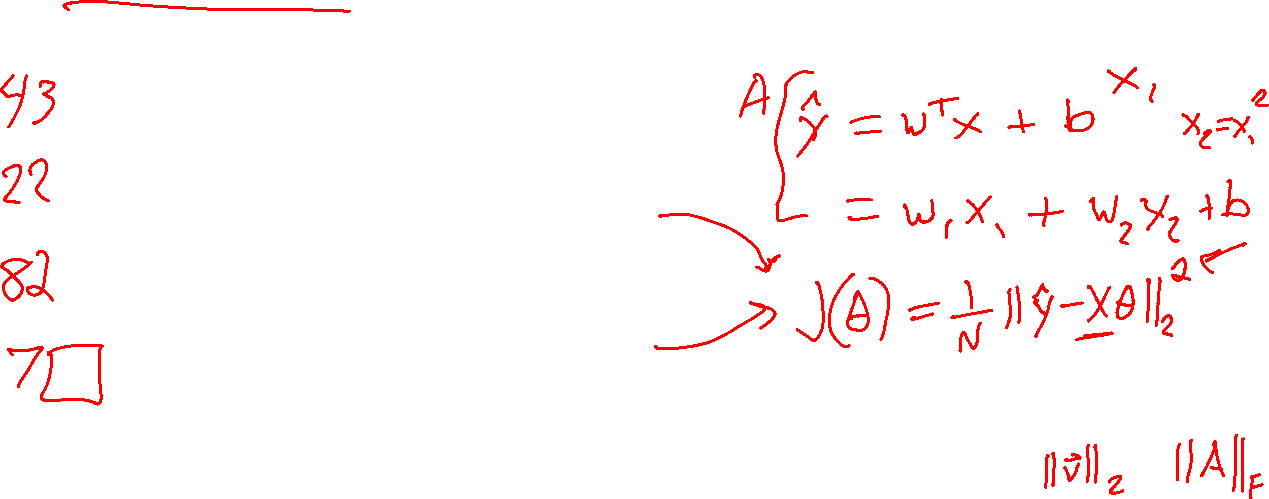 43
22
82
7□
A [ ŷ = wᵀx + b x₁ x₂=x₁²
= w₁x₁ + w₂x₂ + b
J(θ) = 1/N ||ŷ - Xθ||₂²
||v⃗||₂ ||A||_F